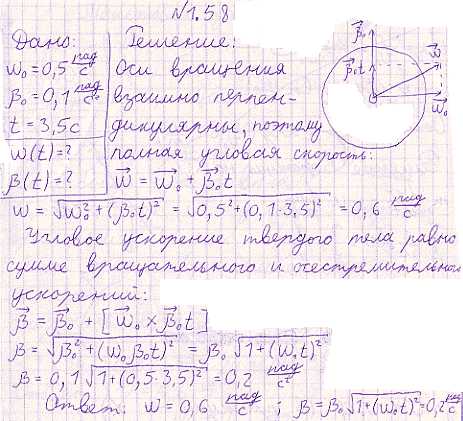 №1.58
Дано:
ω₀ = 0,5 рад/с
β₀ = 0,1 рад/с²
t = 3,5с
ω(t) = ?
β(t) = ?
Решение:
Оси вращения
взаимно перпен-
дикулярны, поэтому
полная угловая скорость:
ω⃗ = ω⃗₀ + β⃗₀t
β⃗₀
β⃗₀t
ω⃗
ω⃗₀
ω = √(ω₀² + (β₀t)²) = √(0,5² + (0,1·3,5)²) = 0,6 рад/с
Угловое ускорение твердого тела равно
сумме вращательного и осестремительного
ускорений:
β⃗ = β⃗₀ + [ω⃗₀ × β⃗₀t]
β = √(β₀² + (ω₀β₀t)²) = β₀ √(1+(ω₀t)²)
β = 0,1 √(1+(0,5·3,5)²) = 0,2 рад/с²
Ответ: ω = 0,6 рад/с ; β = β₀ √(1+(ω₀t)²) = 0,2 рад/с²